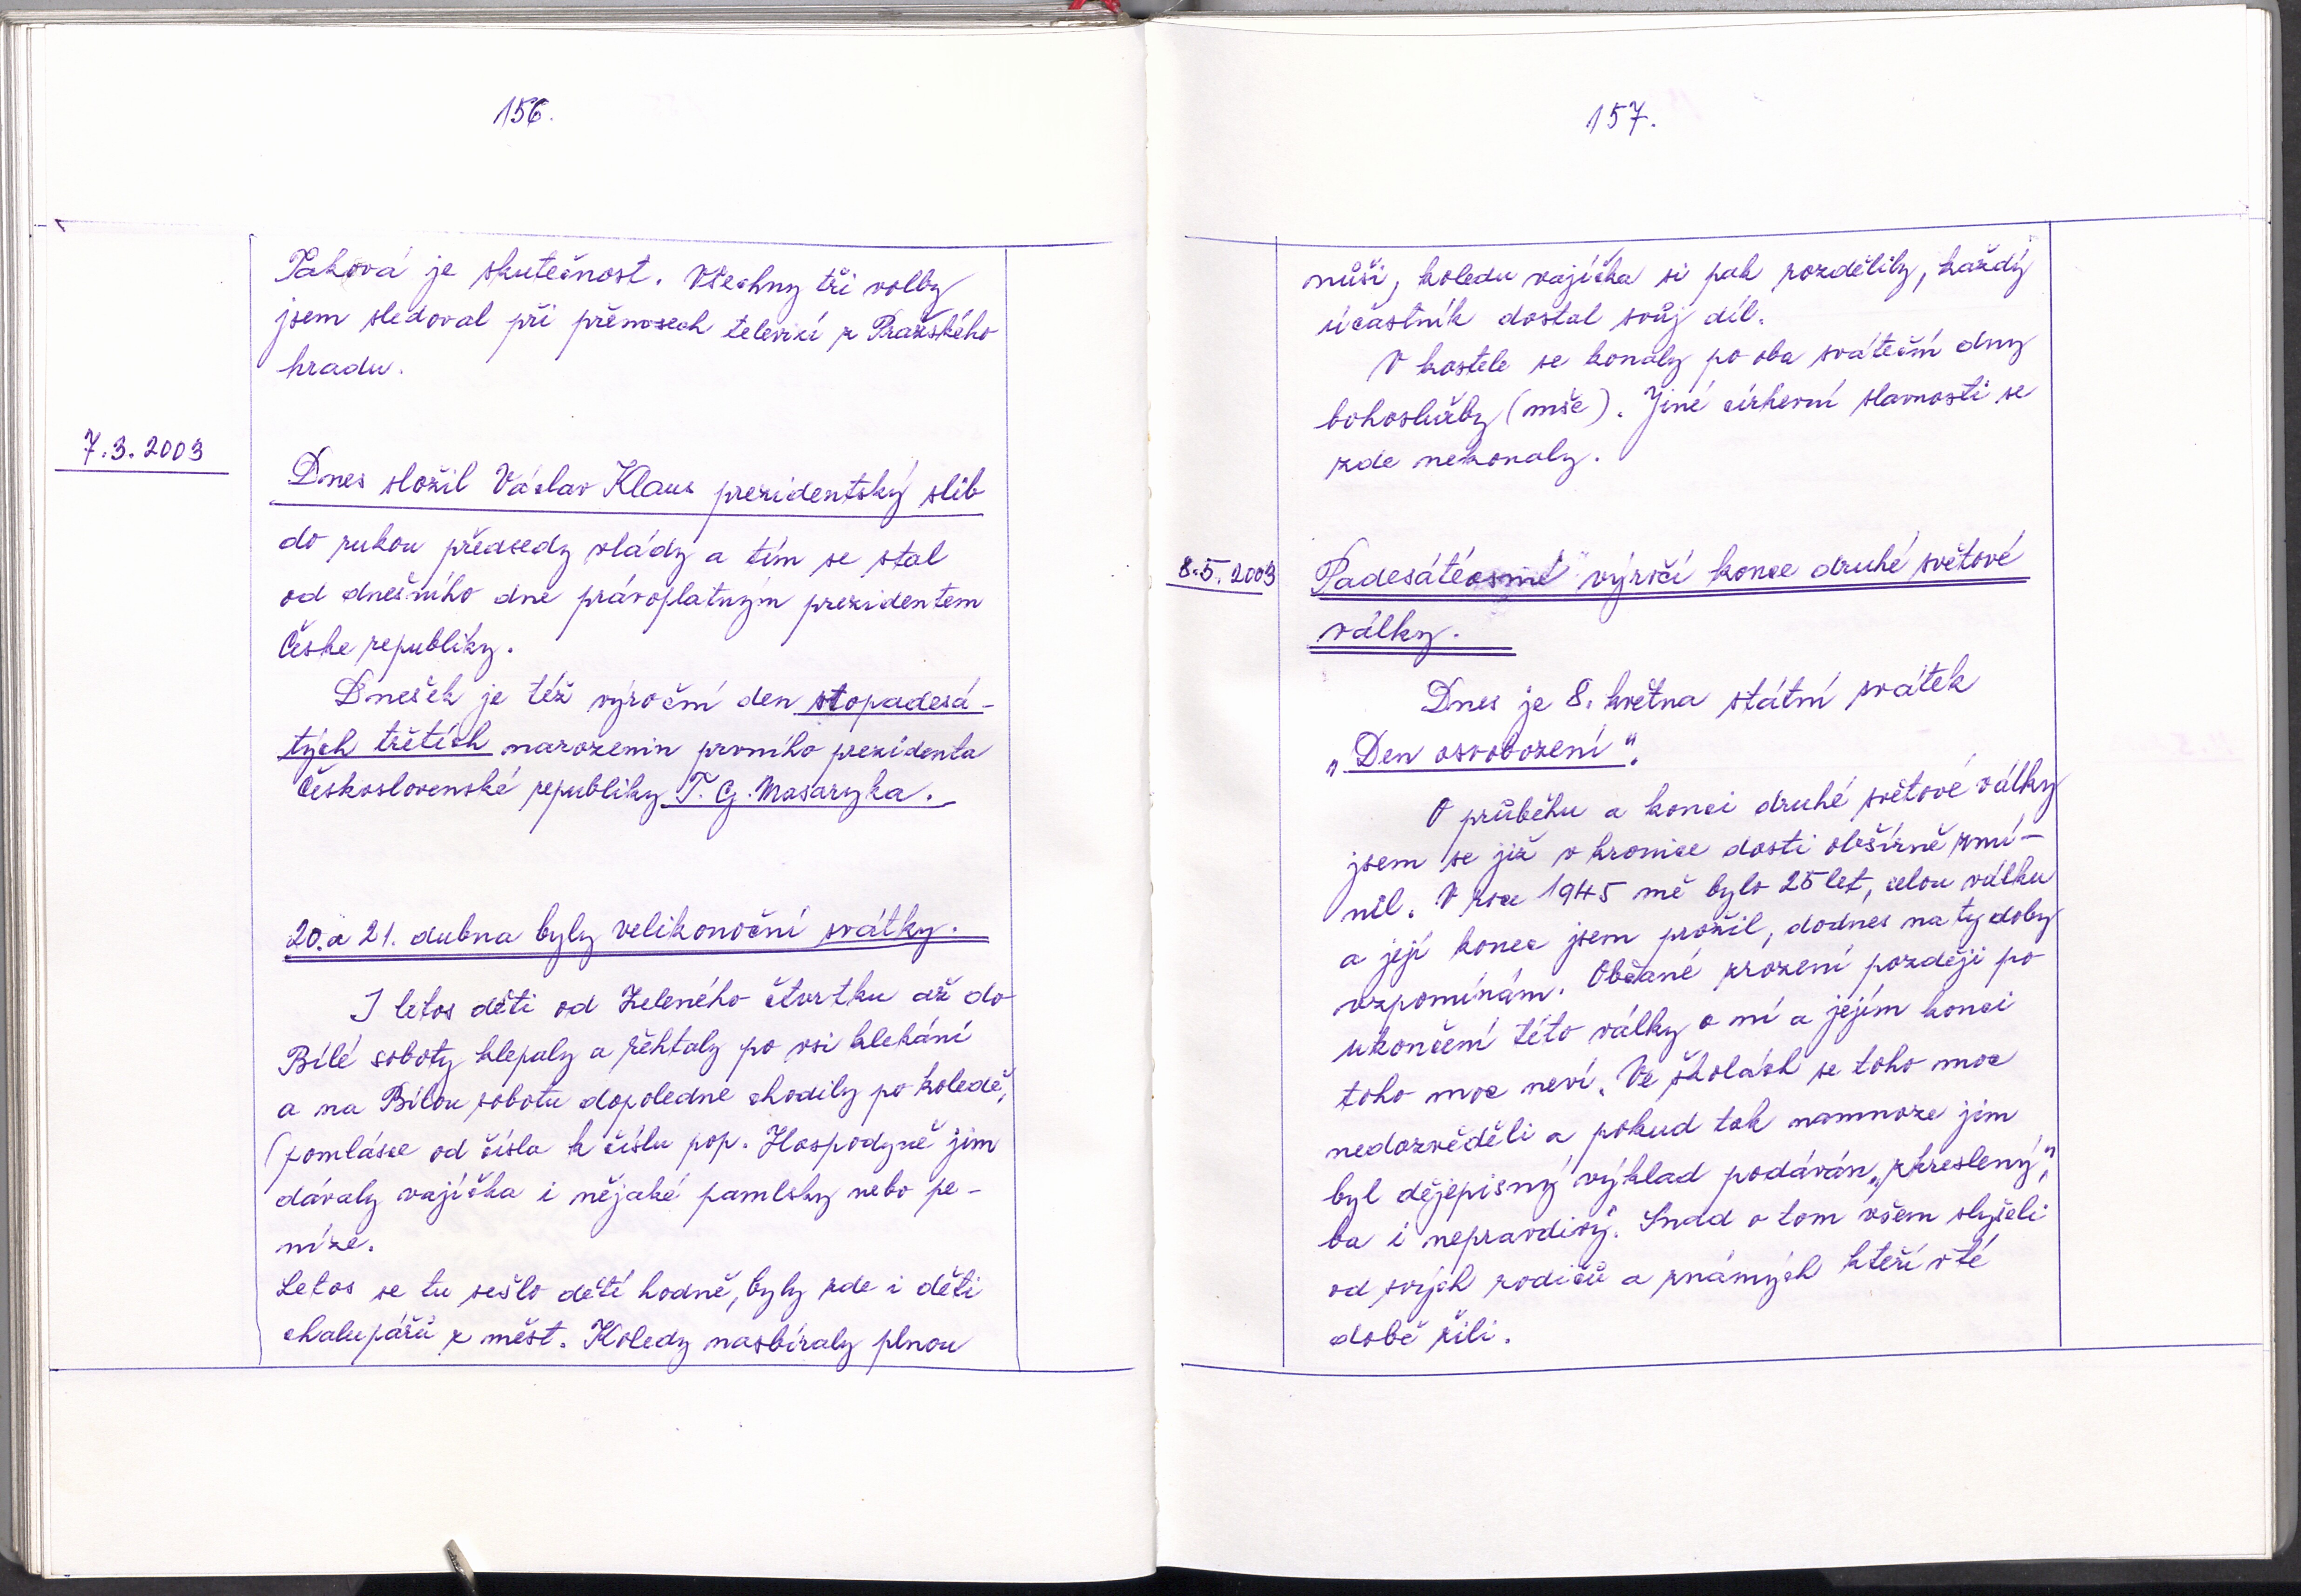 156.
Taková je skutečnost. Všechny tři volby
jsem sledoval při přenosech televizí z Pražského
hradu.
7.3.2003
Dnes složil Václav Klaus prezidentský slib
do rukou předsedy vlády a tím se stal
od dnešního dne právoplatným prezidentem
České republiky.
Dnešek je též výroční den stopadesá-
tých třetích narozenin prvního prezidenta
Československé republiky T. G. Masaryka.
20. a 21. dubna byly velikonoční svátky.
I letos děti od Zeleného čtvrtku až do
Bílé soboty klepaly a řehtaly po vsi klekání
a na Bílou sobotu dopoledne chodily po koledě,
(pomlásce od čísla k číslu pop. Hospodyně jim
dávaly vajíčka i nějaké pamlsky nebo pe-
níze.
Letos se tu sešlo dětí hodně, byly zde i děti
chalupářů z měst. Koledy nasbíraly plnou
157.
nůši, koledu vajíčka si pak rozdělily, každý
účastník dostal svůj díl.
V kostele se konaly po oba sváteční dny
bohoslužby (mše). Jiné církevní slavnosti se
zde nekonaly.
8.5.2003
Padesátéosmé výročí konce druhé světové
války.
Dnes je 8. května státní svátek
„Den osvobození".
O průběhu a konci druhé světové války
jsem se již v kronice dosti obšírně zmí-
nil. V roce 1945 mě bylo 25 let, celou válku
a její konec jsem prožil, dodnes na ty doby
vzpomínám. Občané zrození později po
ukončení této války o ní a jejím konci
toho moc neví. Ve školách se toho moc
nedozvěděli a pokud tak namnoze jim
byl dějepisný výklad podáván „zkreslený",
ba i nepravdivý. Snad o tom všem slyšeli
od svých rodičů a známých kteří v té
době žili.